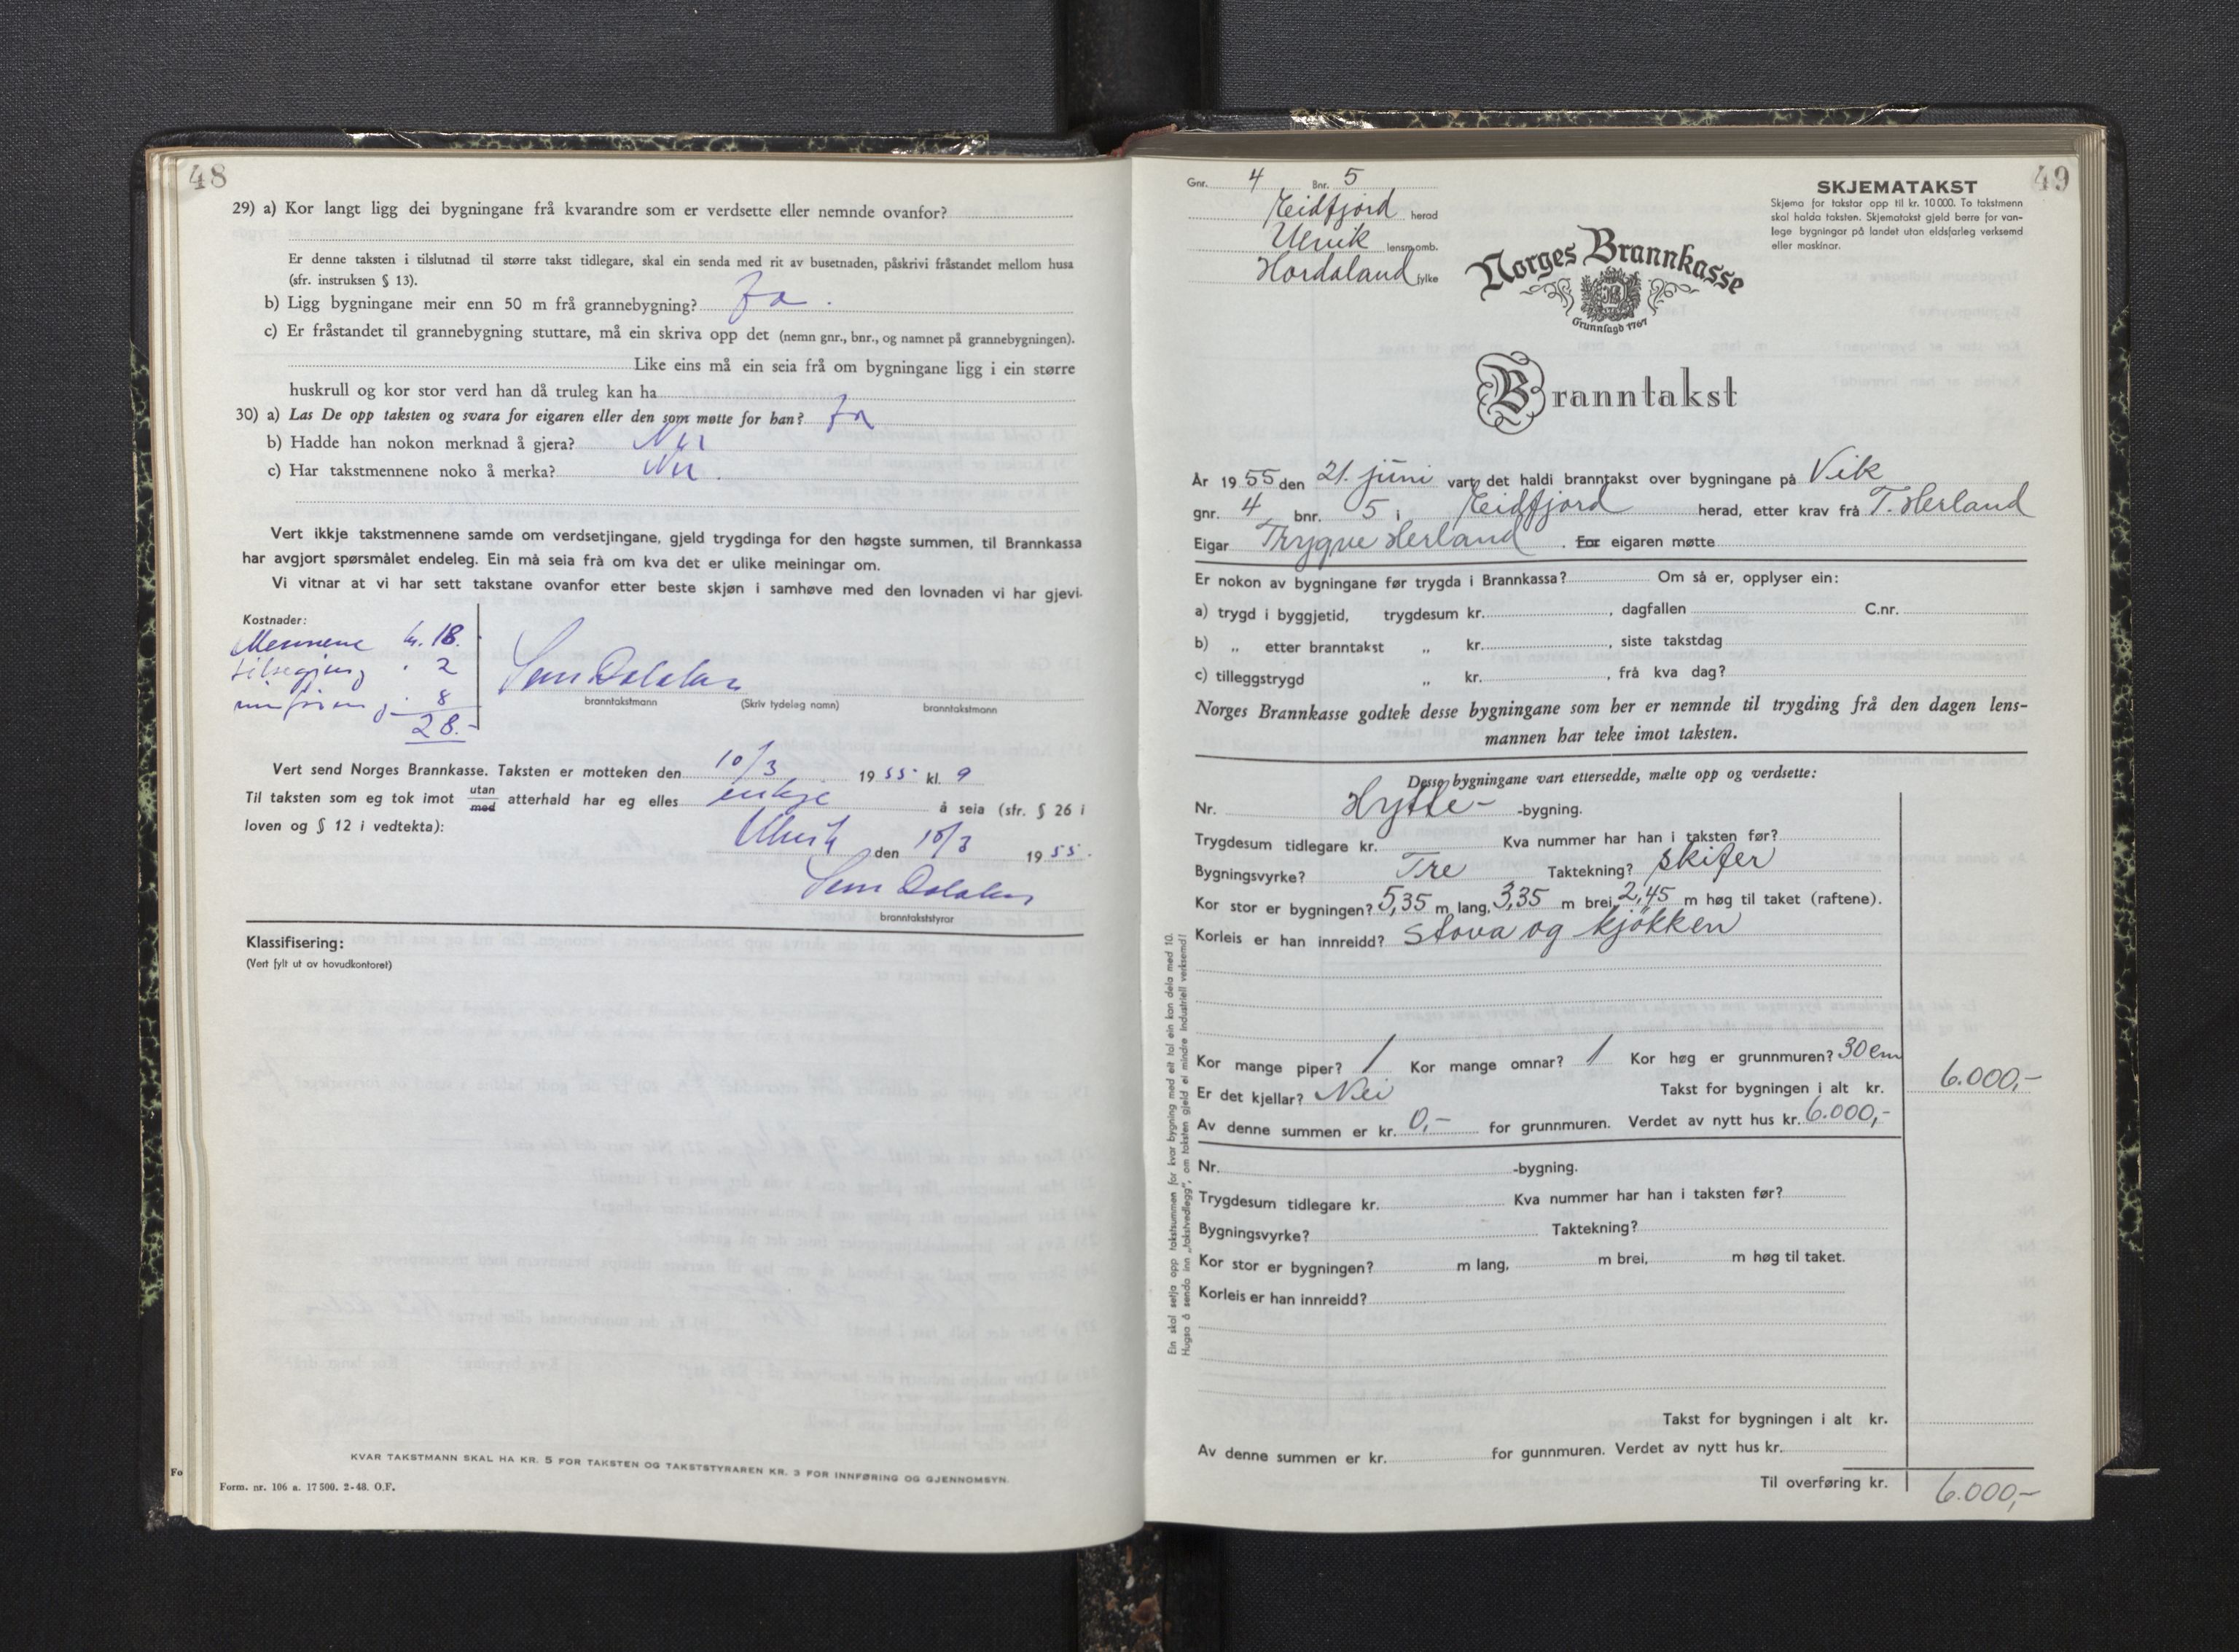 48
29) a) Kor langt ligg dei bygningane frå kvarandre som er verdsette eller nemnde ovanfor?
Er denne taksten i tilslutnad til større takst tidlegare, skal ein senda med rit av busetnaden, påskrivi fråstandet mellom husa
(sfr. instruksen § 13).
b) Ligg bygningane meir enn 50 m frå grannebygning? Ja.
c) Er fråstandet til grannebygning stuttare, må ein skriva opp det (nemn gnr., bnr., og namnet på grannebygningen).
Like eins må ein seia frå om bygningane ligg i ein større
huskrull og kor stor verd han då truleg kan ha
30) a) Las De opp taksten og svara for eigaren eller den som møtte for han? Ja
b) Hadde han nokon merknad å gjera? Nei
c) Har takstmennene noko å merka? Nei.
Vert ikkje takstmennene samde om verdsetjingane, gjeld trygdinga for den høgste summen, til Brannkassa
har avgjort spørsmålet endeleg. Ein må seia frå om kva det er ulike meiningar om.
Vi vitnar at vi har sett takstane ovanfor etter beste skjøn i samhøve med den lovnaden vi har gjevi.
Kostnader:
Mennene kr. 18.
tilsegjing " 2
innføring " 8
28.-
branntakstmann (Skriv tydeleg namn) branntakstmann
Vert send Norges Brannkasse. Taksten er motteken den 10/3 1955 kl. 9
Til taksten som eg tok imot utan/med atterhald har eg elles inkje å seia (sfr. § 26 i
loven og § 12 i vedtekta):
Ulvik den 10/3 1955.
branntakststyrar
Klassifisering:
(Vert fylt ut av hovudkontoret)
KVAR TAKSTMANN SKAL HA KR. 5 FOR TAKSTEN OG TAKSTSTYRAREN KR. 3 FOR INNFØRING OG GJENNOMSYN.
Form. nr. 106 a. 17500. 2-48. O.F.
Fo
49
Gnr. 4 Bnr. 5
Eidfjord herad
Ulvik lensm.omb.
Hordaland fylke
SKJEMATAKST
Skjema for takstar opp til kr. 10000. To takstmenn
skal halda taksten. Skjematakst gjeld berre for van-
lege bygningar på landet utan eldsfarleg verksemd
eller maskinar.
Norges Brannkasse
Grunnlagd 1767
Branntakst
År 1955 den 21. juni vart det haldi branntakst over bygningane på Vik
gnr. 4 bnr. 5 i Eidfjord herad, etter krav frå T. Herland
Eigar Trygve Herland. For eigaren møtte
Er nokon av bygningane før trygda i Brannkassa? Om så er, opplyser ein:
a) trygd i byggjetid, trygdesum kr. , dagfallen C.nr.
b) „ etter branntakst „ kr. , siste takstdag
c) tilleggstrygd „ kr. , frå kva dag?
Norges Brannkasse godtek desse bygningane som her er nemnde til trygding frå den dagen lens-
mannen har teke imot taksten.
Desse bygningane vart ettersedde, mælte opp og verdsette:
Nr. Hytte- -bygning.
Trygdesum tidlegare kr. Kva nummer har han i taksten før?
Bygningsvyrke? Tre Taktekning? Skifer
Kor stor er bygningen? 5,35 m lang, 3,35 m brei, 2,45 m høg til taket (raftene).
Korleis er han innreidd? Stova og kjökken
Kor mange piper? 1 Kor mange omnar? 1 Kor høg er grunnmuren? 30 cm
Er det kjellar? Nei Takst for bygningen i alt kr. 6.000,-
Av denne summen er kr. 0,- for grunnmuren. Verdet av nytt hus kr. 6.000,-
Nr. -bygning.
Trygdesum tidlegare kr. Kva nummer har han i taksten før?
Bygningsvyrke? Taktekning?
Kor stor er bygningen? m lang, m brei, m høg til taket.
Korleis er han innreidd?
Takst for bygningen i alt kr.
Av denne summen er kr. for gunnmuren. Verdet av nytt hus kr.
Til overføring kr. 6.000,-
Ein skal setja opp takstsummen for kvar bygning med eit tal ein kan dela med 10.
Hugsa å senda inn „takstvedlegg", om taksten gjeld ei mindre industriell verksemd!